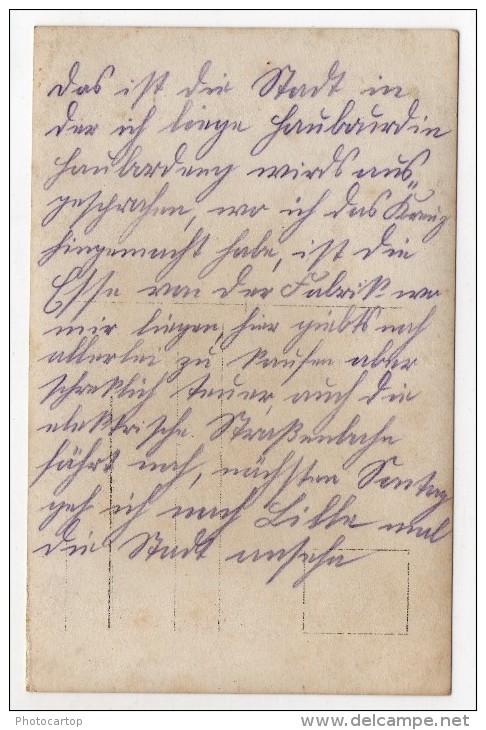 das ist die Stadt in
der ich liege Haubourdin
Haubordeng wirds aus=
gesprachen, wo ich das Kreuz
hingemacht habe, ist die
Esse von der Fabrik wo
mir liegen, hier giebts noch
allerlei zu kaufen aber
schreklich teuer, auch die
elektrische Straßenbahn
fährt noch, nächsten Sontag
geh ich nach Lille mal
die Stadt ansehn
Photocartop
www.delcampe.net